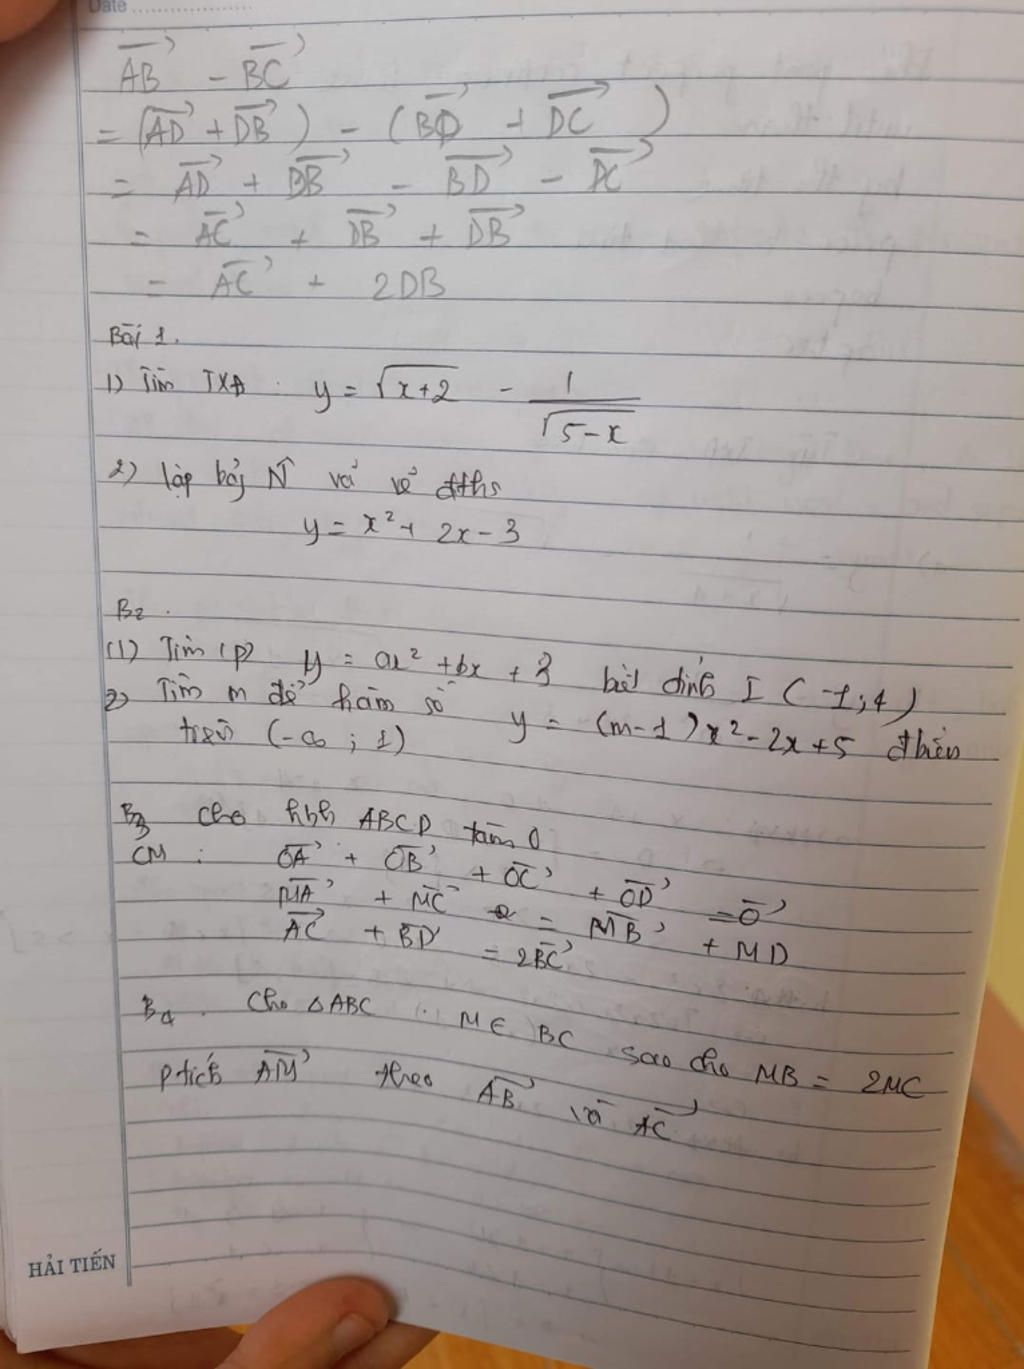 Date
AB - BC
= (AD + DB) - (BD + DC)
= AD + DB - BD - DC
= AC + DB + DB
= AC + 2DB
Bài 1.
1) Tìm TXĐ. y = √(x+2) - 1/√(5-x)
2) lập bảy và vẽ đths
y = x² + 2x - 3
B2.
(1) Tìm (P) y = ax² + bx + 3 biết đỉnh I (-1; 4)
2) Tìm m để hàm số y = (m-1)x² - 2x + 5 đbiến
trên (-∞ ; 1)
B3 cho hbh ABCD tâm O
CM : OA + OB + OC + OD = O
MA + MC = MB + MD
AC + BD = 2BC
B4. Cho △ABC. M ∈ BC sao cho MB = 2MC
ptích AM theo AB và AC
HẢI TIẾN